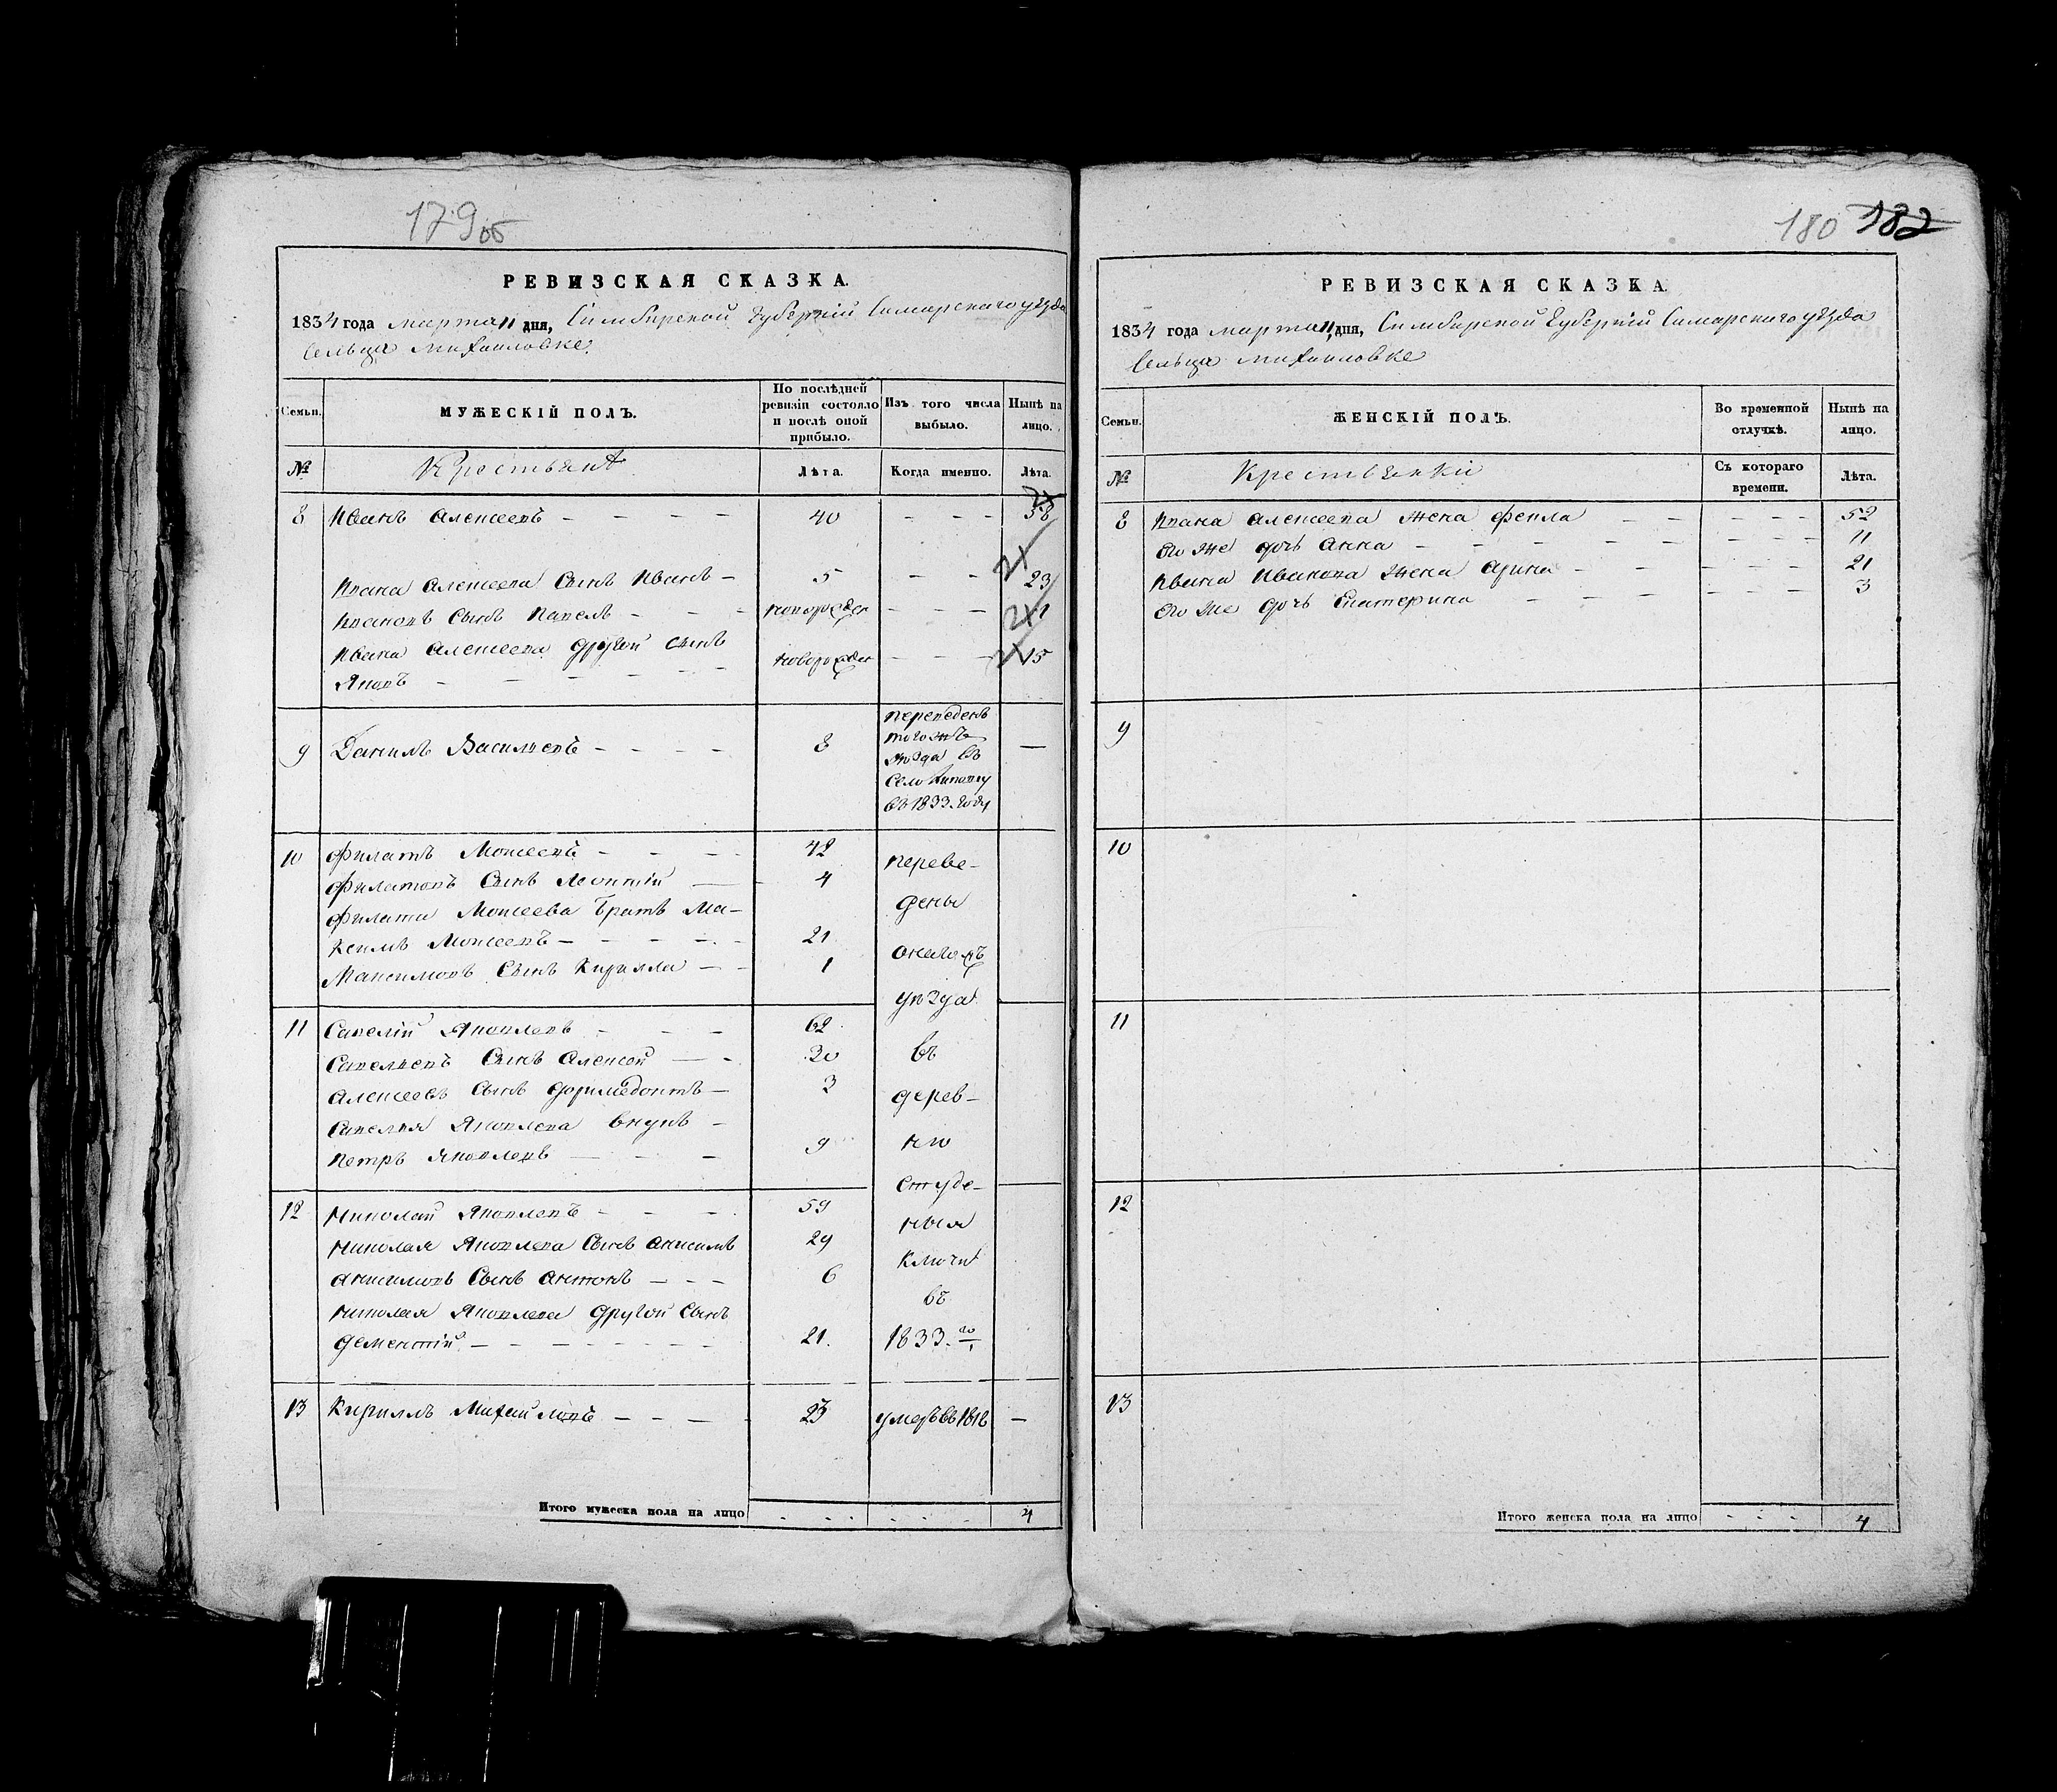 179об
РЕВИЗСКАЯ СКАЗКА.
1834 года марта 11 дня, Симбирской Губерніи Самарскаго уѣзда
Сельца Михайловке.
Семьи.
МУЖЕСКІЙ ПОЛЪ.
По послѣдней ревизіи состояло и послѣ оной прибыло.
Изъ того числа выбыло.
Нынѣ на лицо.
№
Крестьяне
Лѣта.
Когда именно.
Лѣта.
8 Иванъ Алексеевъ 40 58
Ивана Алексеева Сынъ Иванъ 5 23
Ивановъ Сынъ Павелъ новорожден 1
Ивана Алексеева другой сынъ
Яковъ новорожден 15
9 Данилъ Васильевъ 8
переведенъ
тогожъ
уѣзда въ
Село
въ 1833. году
10 Филатъ Моисеевъ 42
Филатовъ Сынъ Леонтій 4
Филата Моисеева братъ Ма-
ксимъ Моисеевъ 21
Максимовъ Сынъ Кирилла 1
11 Савелій Яковлевъ 62
Савельевъ Сынъ Алексей 30
Алексеевъ Сынъ Доримедонтъ 3
Савелья Яковлева внукъ
Петръ Яковлевъ 9
12 Николай Яковлевъ 59
Николая Яковлева Сынъ Анисимъ 29
Анисимовъ Сынъ Антонъ 6
Николая Яковлева другой Сынъ
Дементій 21.
переве-
дены
уѣзда
въ
дерев-
ню
Студе-
ныя
Ключи
въ
1833. го
13 Кириллъ Михайловъ 23 умеръ въ 1818
Итого мужеска пола на лицо 4
180 182
РЕВИЗСКАЯ СКАЗКА.
1834 года марта 11 дня, Симбирской Губерніи Самарскаго уѣзда
Сельца Михайловке
Семьи.
ЖЕНСКІЙ ПОЛЪ.
Во временной отлучкѣ.
Нынѣ на лицо.
№
Крестьянки
Съ котораго времени.
Лѣта.
8 Ивана Алексеева жена Фекла 52
его же дочь Анна 11
Ивана Иванова жена Арина 21
его же дочь Екатерина 3
9
10
11
12
13
Итого женска пола на лицо 4